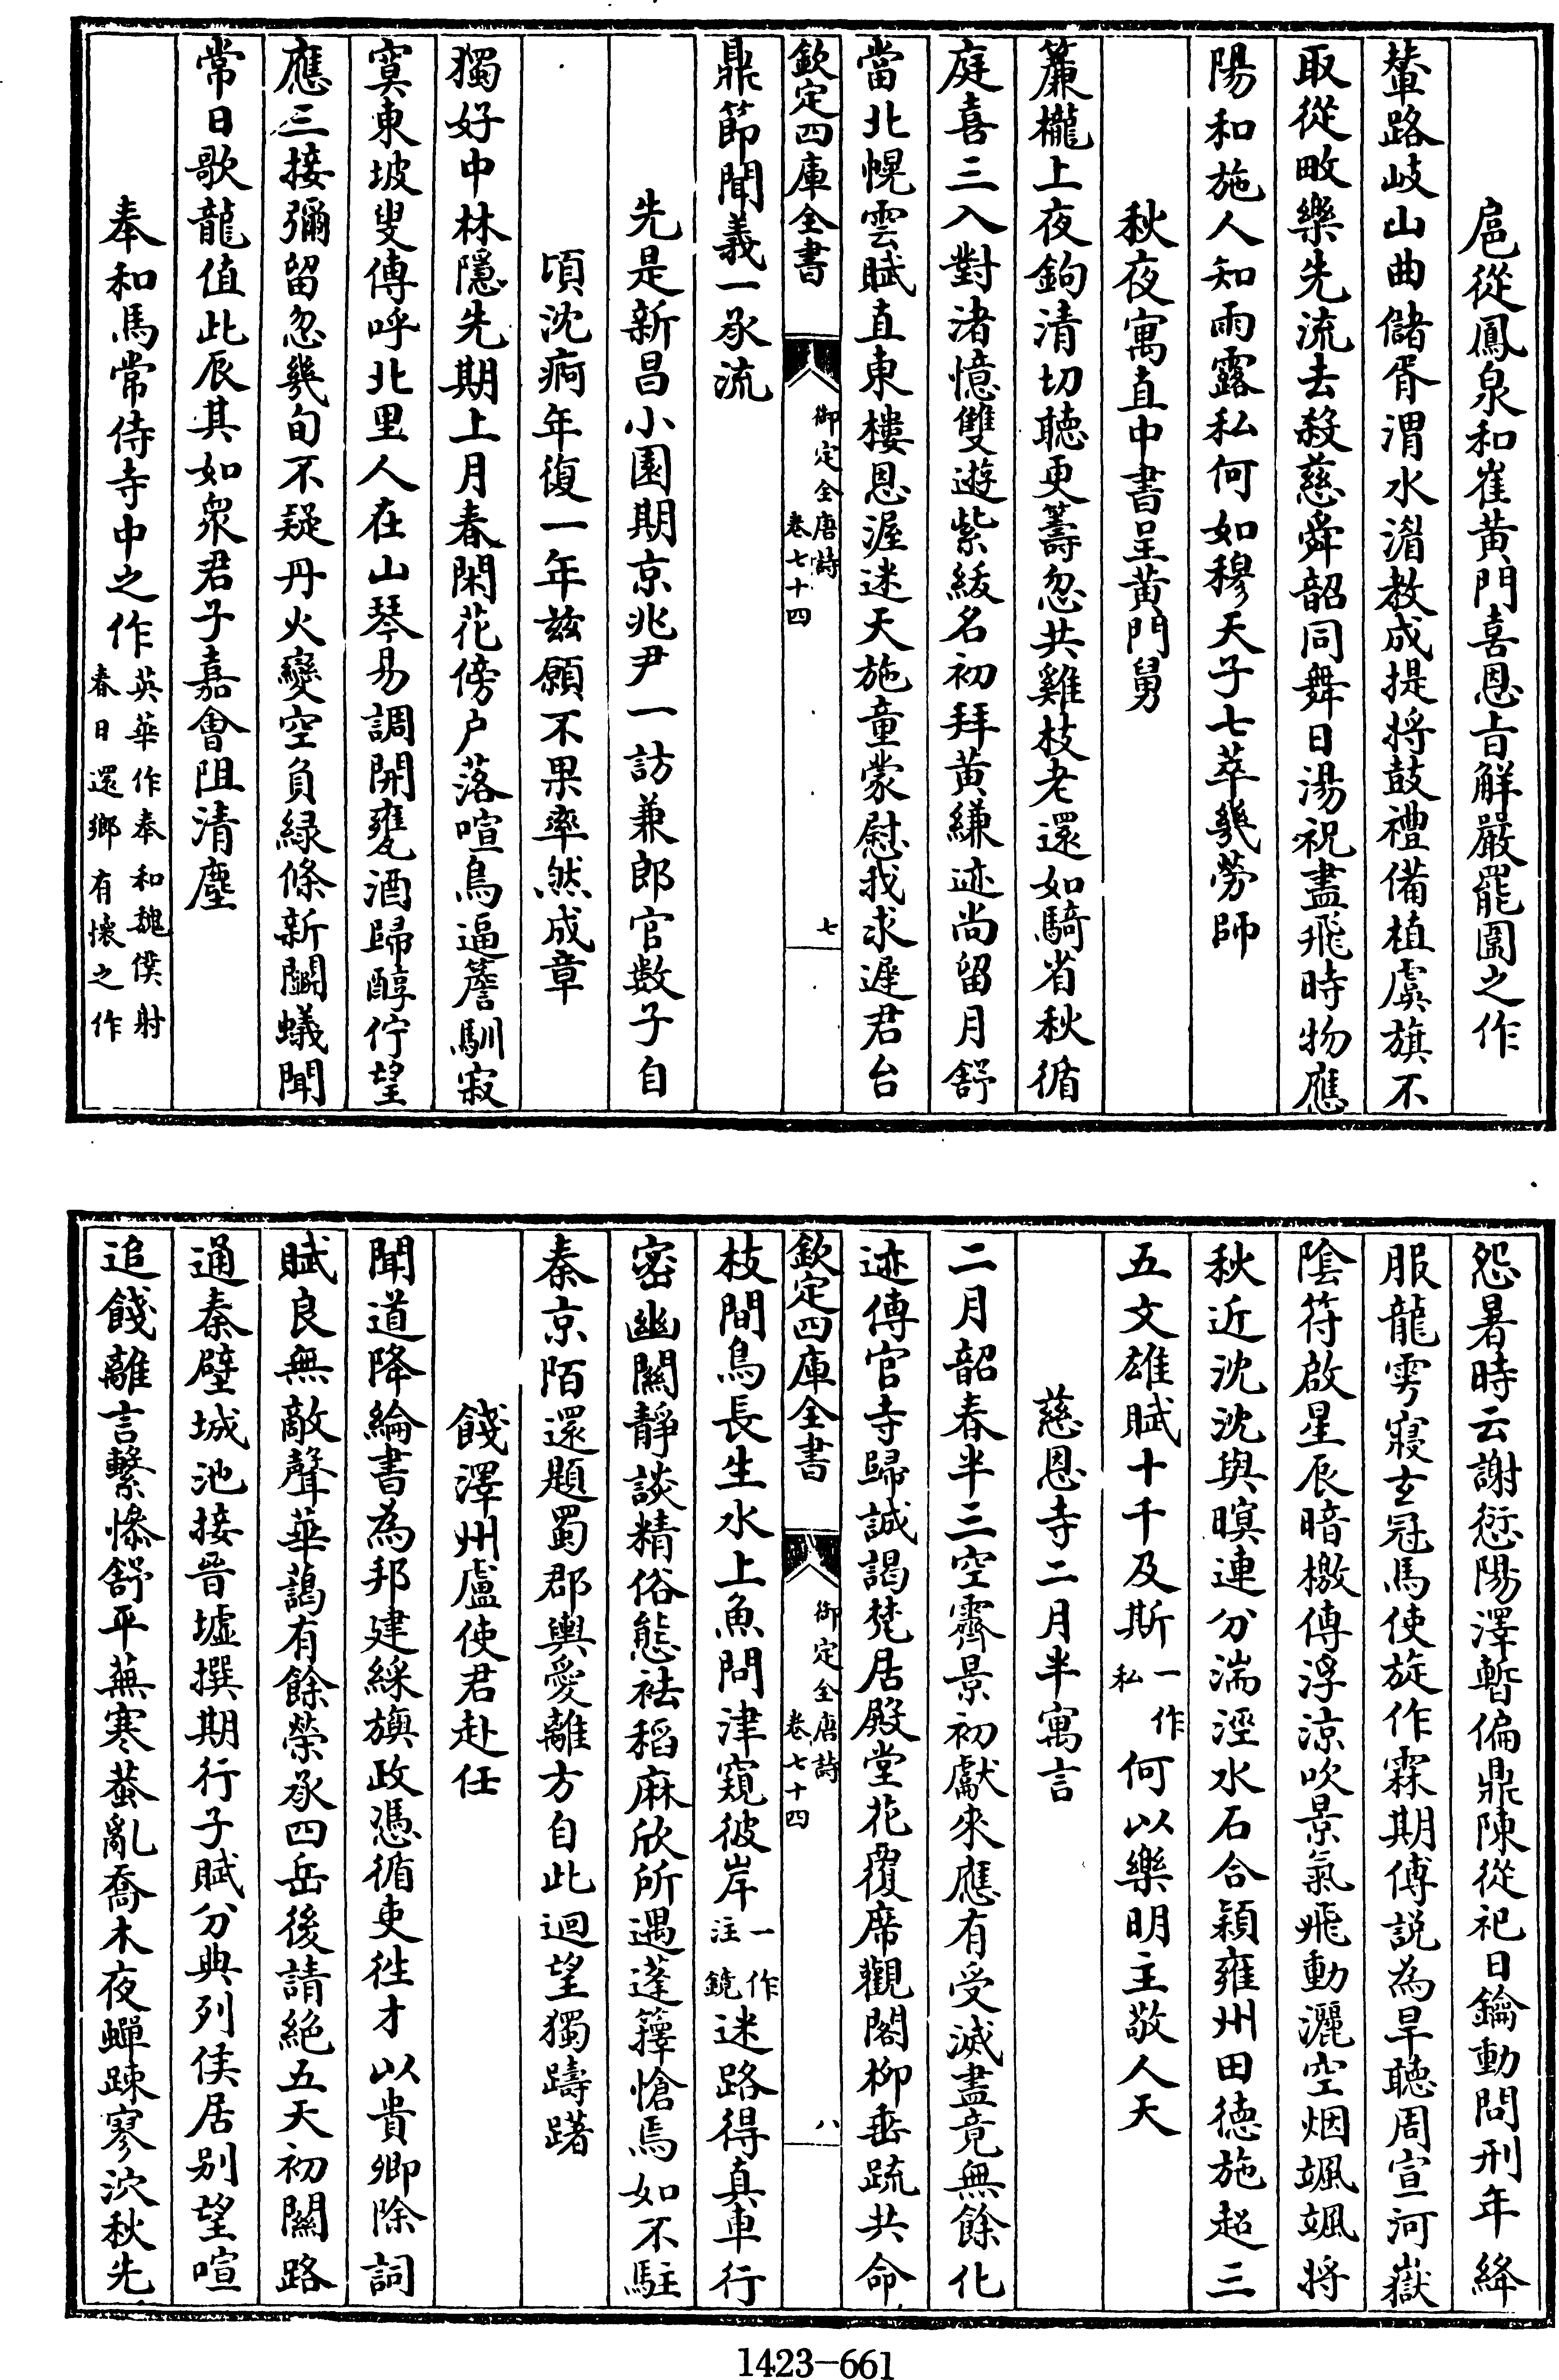 扈從鳳泉和崔黃門喜恩旨解嚴罷圍之作
輦路岐山曲儲胥渭水湄教成提將鼓禮備植虞旗不
取從畋樂先流去殺慈舜韶同舞日湯祝盡飛時物應
陽和施人知雨露私何如穆天子七萃幾勞師
秋夜寓直中書呈黃門舅
簾櫳上夜鉤清切聽更籌忽共雞枝老還如騎省秋循
庭喜三入對渚憶雙遊紫紱名初拜黃縑迹尚留月舒
當北幌雲賦直東樓恩渥迷天施童蒙慰我求遲君台
欽定四庫全書 御定全唐詩 卷七十四 七
鼎節聞義一承流
先是新昌小園期京兆尹一訪兼郎官數子自
頃沈痾年復一年茲願不果率然成章
獨好中林隱先期上月春閑花傍户落喧鳥逼簷馴寂
寞東坡叟傳呼北里人在山琴易調開甕酒歸醇佇望
應三接彌留忽幾旬不疑丹火變空負綠條新鬭蟻聞
常日歌龍值此辰其如衆君子嘉會阻清塵
奉和馬常侍寺中之作 英華作奉和魏僕射春日還鄉有懷之作
怨暑時云謝愆陽澤暫偏鼎陳從祀日鑰動問刑年絳
服龍雩寢玄冠馬使旋作霖期傅説為旱聽周宣河嶽
陰符啟星辰暗檄傳浮涼吹景氣飛動灑空烟颯颯將
秋近沈沈與暝連分湍涇水石合穎雍州田德施超三
五文雄賦十千及斯 一作私 何以樂明主敬人天
慈恩寺二月半寓言
二月韶春半三空霽景初獻來應有受滅盡竟無餘化
迹傳官寺歸誠謁梵居殿堂花覆席觀閣柳垂疏共命
欽定四庫全書 御定全唐詩 卷七十四 八
枝間鳥長生水上魚問津窺彼岸 一作注鏡 迷路得真車行
密幽關靜談精俗態袪稻麻欣所遇蓬籜愴焉如不駐
秦京陌還題蜀郡輿愛離方自此迴望獨躊躇
餞澤州盧使君赴任
聞道降綸書為邦建綵旟政憑循吏徃才以貴卿除詞
賦良無敵聲華藹有餘榮承四岳後請絶五天初關路
通秦壁城池接晉墟撰期行子賦分典列侯居别望喧
追餞離言繫慘舒平蕪寒蛬亂喬木夜蟬踈寥泬秋先
1423—661